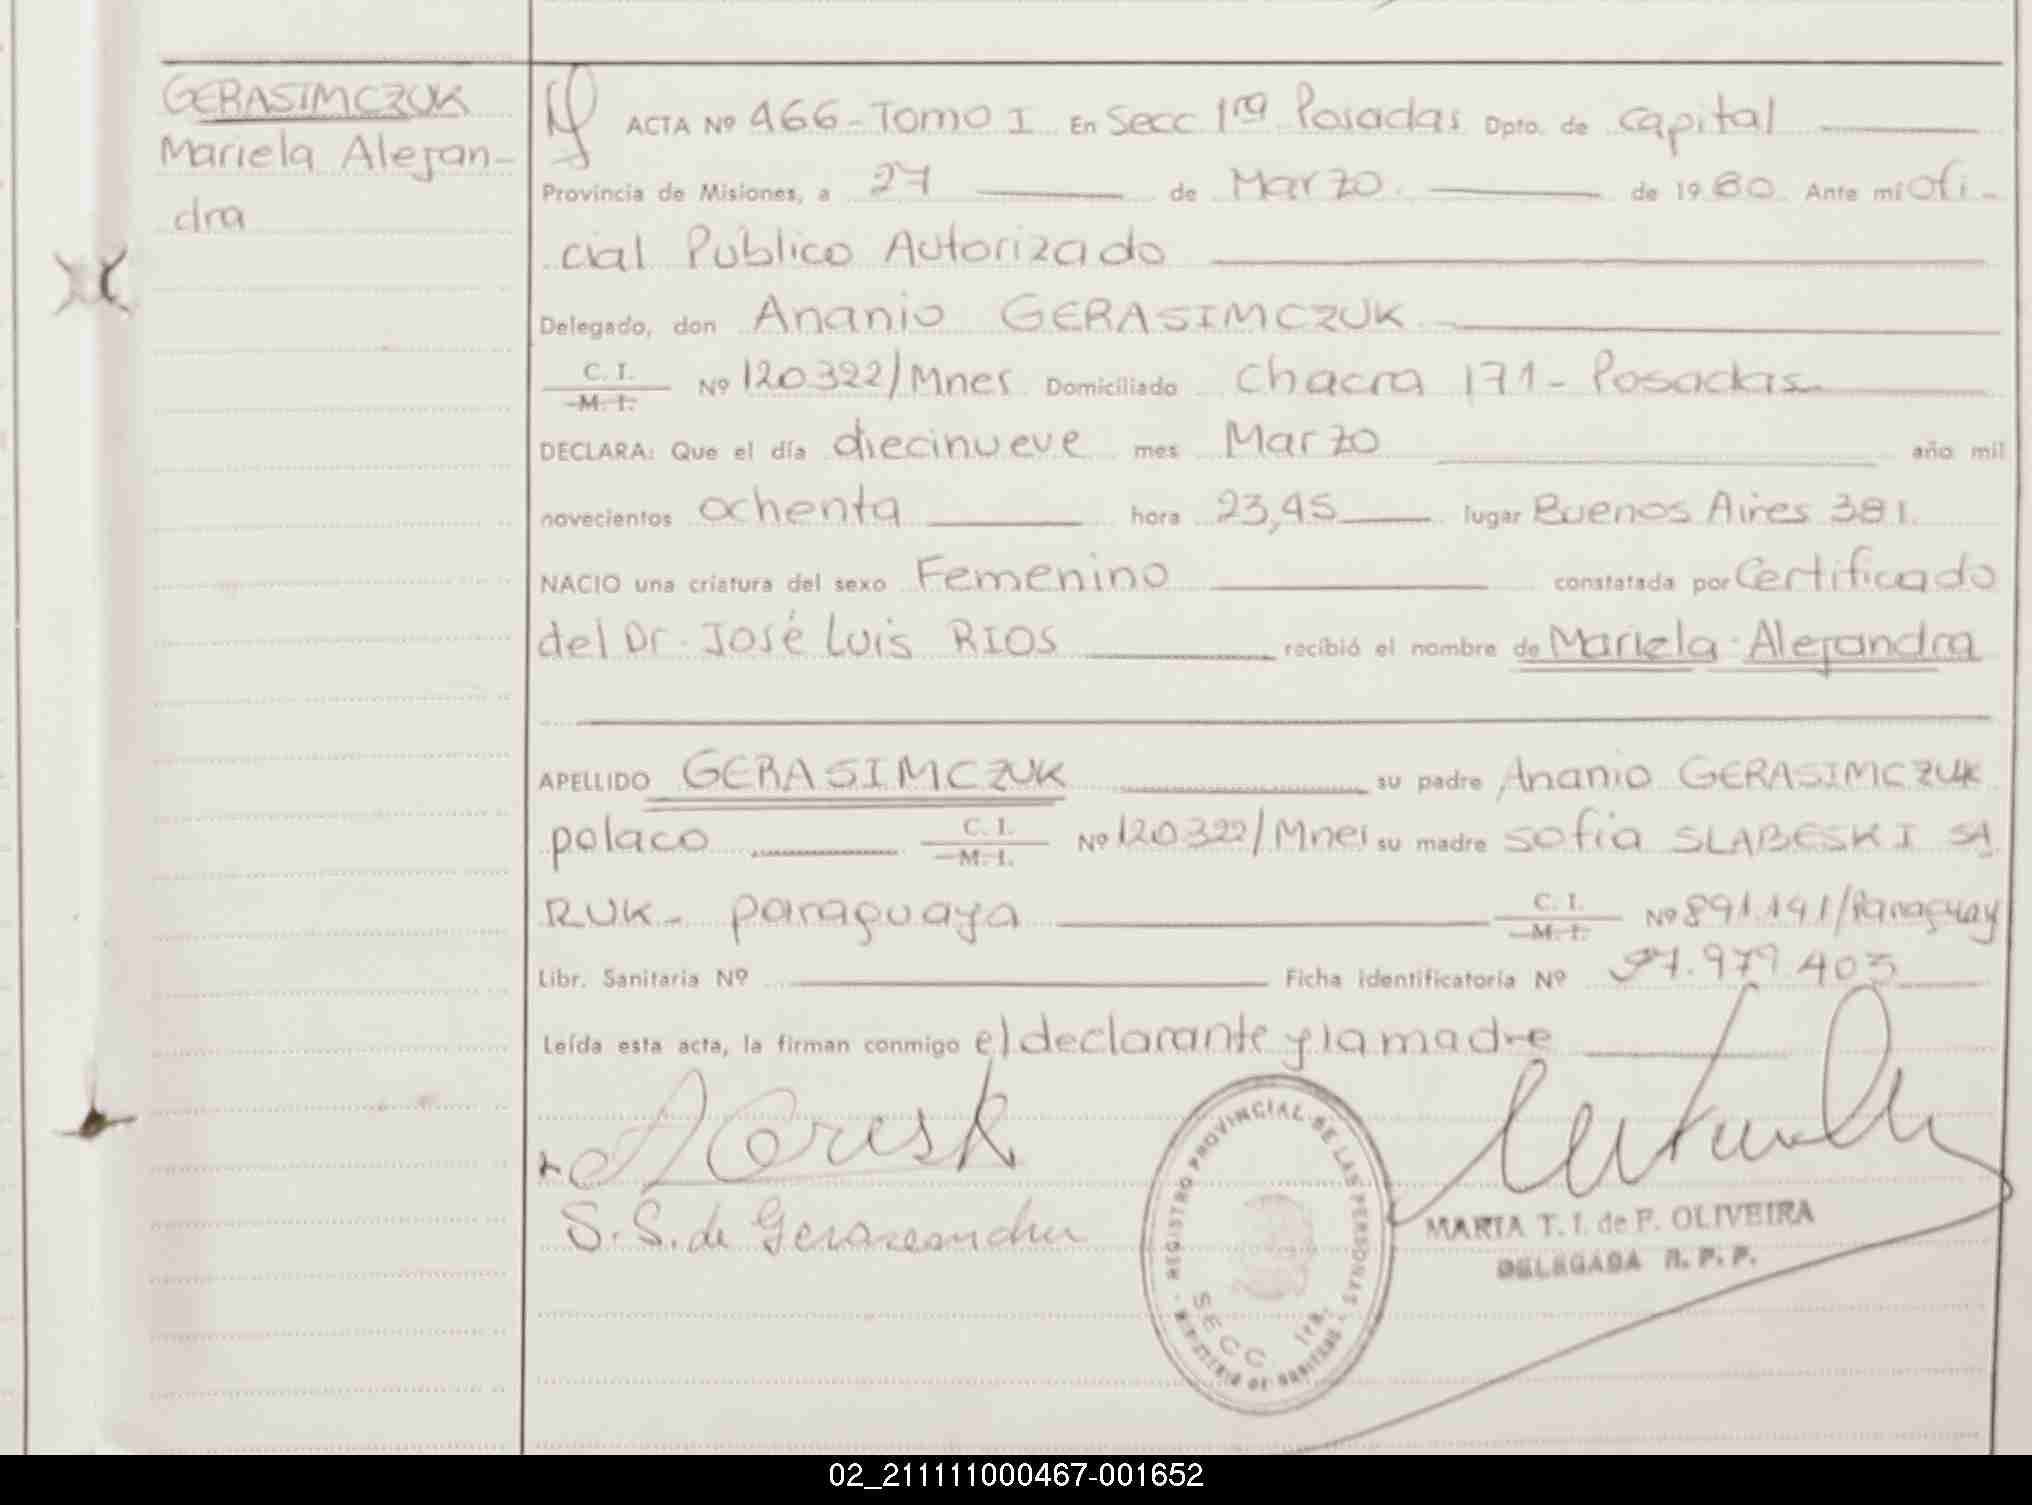 GERASIMCZUK
Mariela Alejan-
dra
ACTA Nº 466-Tomo I En Secc 1ra Posadas Dpto. de Capital
Provincia de Misiones, a 27 de Marzo de 1980 Ante mi Ofi-
cial Publico Autorizado
Delegado, don Ananio GERASIMCZUK
C. I.
M. I.
Nº 120322/Mnes Domiciliado Chacra 171- Posadas
DECLARA: Que el día diecinueve mes Marzo año mil
novecientos ochenta hora 23,45 lugar Buenos Aires 381.
NACIO una criatura del sexo Femenino constatada por Certificado
del Dr. José Luis RIOS recibió el nombre de Mariela Alejandra
APELLIDO GERASIMCZUK su padre Ananio GERASIMCZUK
polaco C. I.
M. I.
Nº 120.322/Mnes su madre Sofia SLABESKI SA
RUK- paraguaya C. I.
M. I.
Nº 891.191/Paraguay
Libr. Sanitaria Nº Ficha identificatoria Nº 27.979.403
Leída esta acta, la firman conmigo el declarante y la madre
S. S. de
REGISTRO PROVINCIAL DE LAS PERSONAS
SECC 1ra.
MINISTERIO DE
MARIA T. I. de F. OLIVEIRA
DELEGADA R. P. P.
02_211111000467-001652